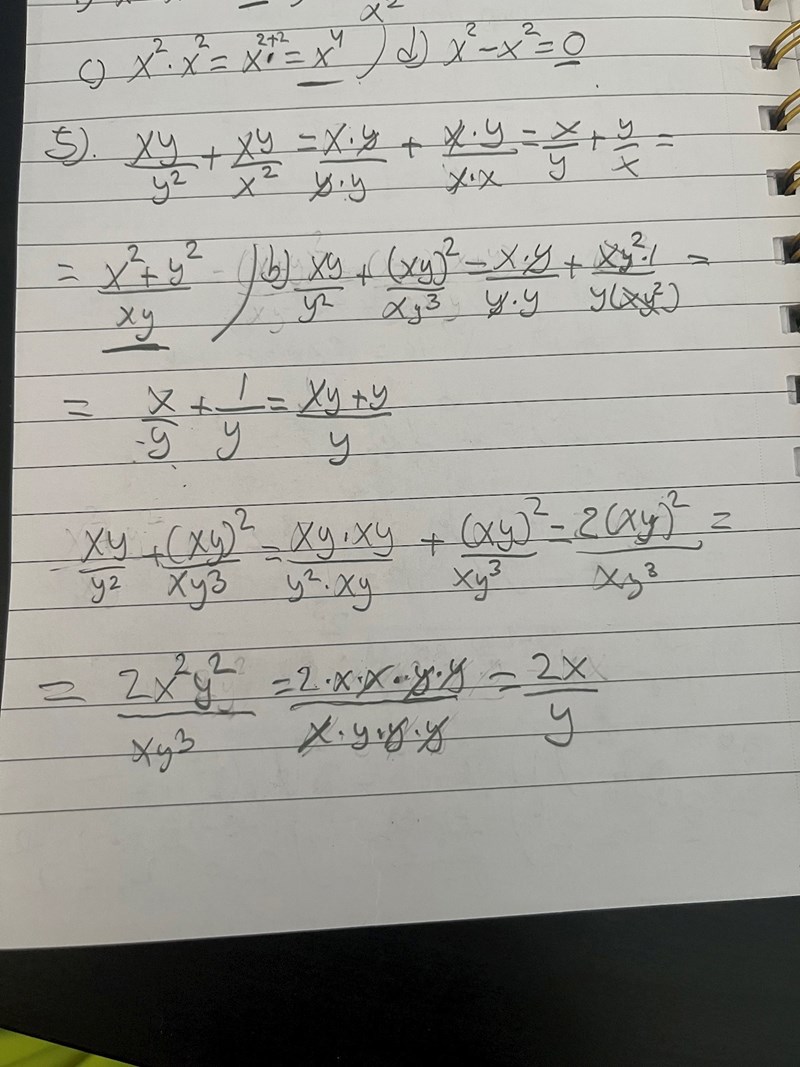 x²
c) x²·x² = x²⁺² = x⁴ ) d) x²-x²=0
5). xy/y² + xy/x² = x·y/y·y + x·y/x·x = x/y + y/x =
= x²+y²/xy ) b) xy/y² + (xy)²/xy³ = x·y/y·y + xy²·1/y(xy²) =
= x/y + 1/y = xy+y/y
xy/y² + (xy)²/xy³ = xy·xy/y²·xy + (xy)²/xy³ = 2(xy)²/xy³ =
= 2x²y²/xy³ = 2·x·x·y·y/x·y·y·y = 2x/y